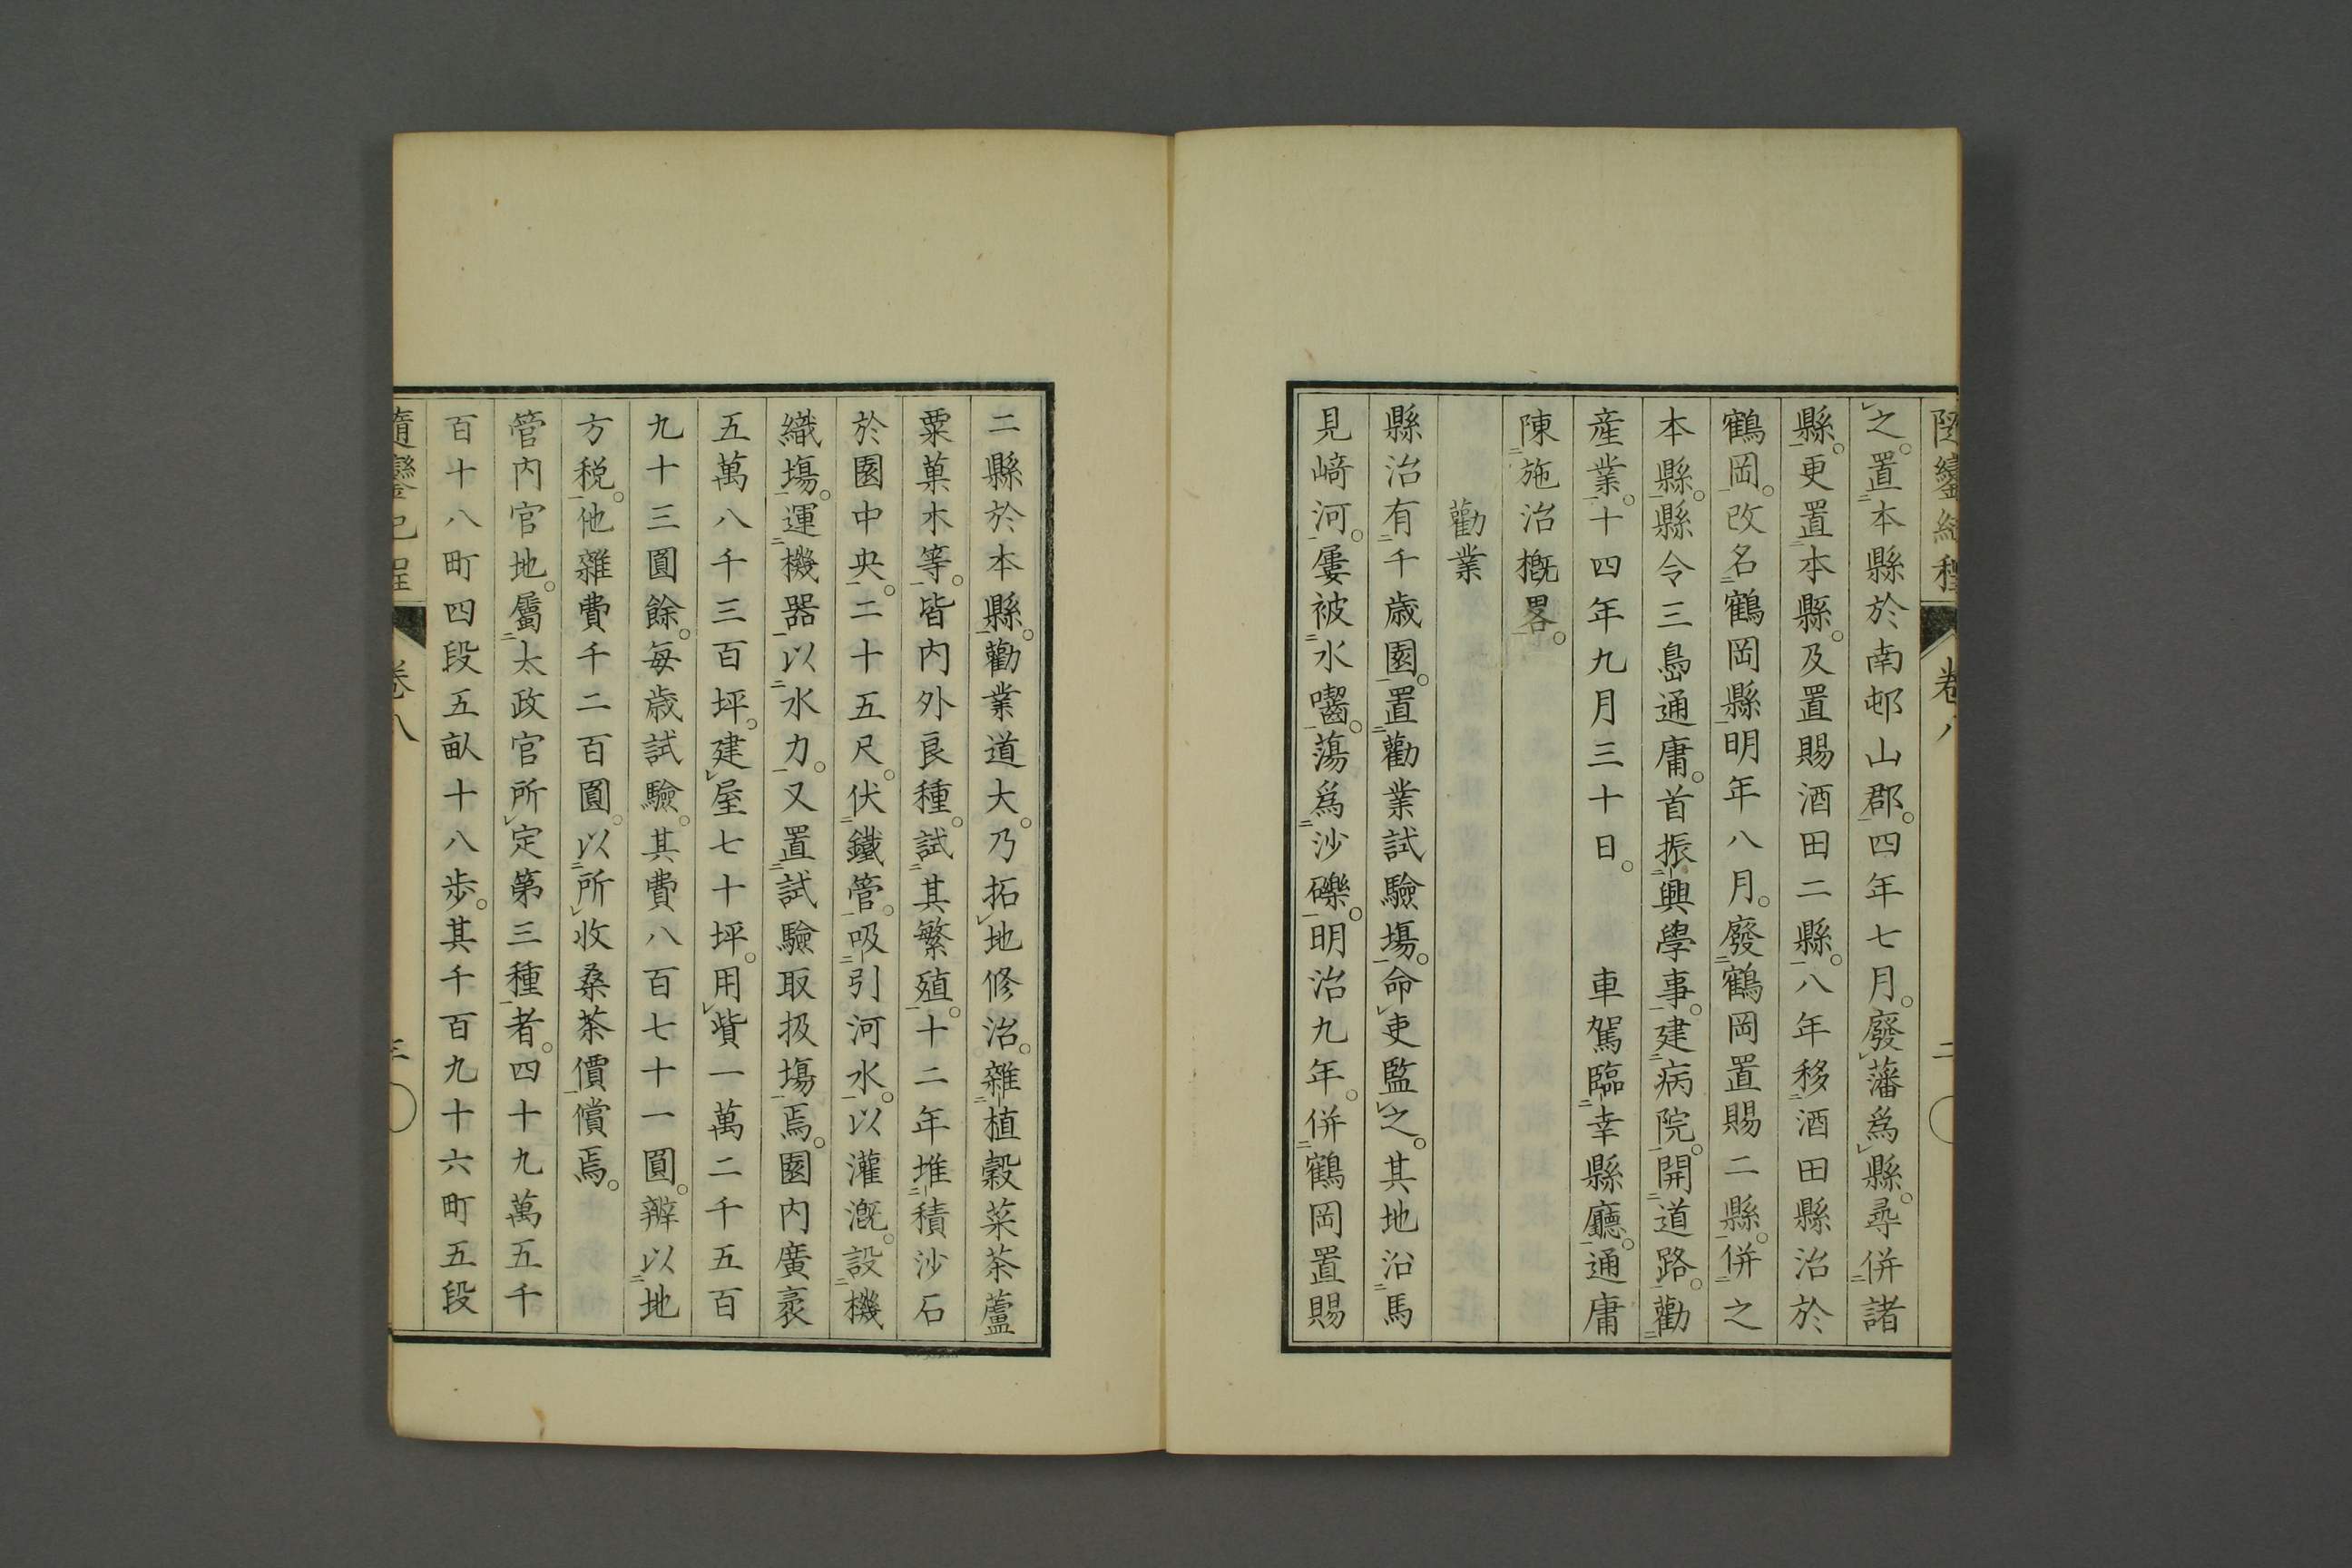 之。置本縣於南邨山郡。四年七月。廢藩爲縣。尋併諸
縣。更置本縣。及置賜酒田二縣。八年移酒田縣治於
鶴岡。改名鶴岡縣明年八月。廢鶴岡置賜二縣。併之
本縣。縣令三島通庸。首振興學事。建病院。開道路。勸
産業。十四年九月三十日。　車駕臨幸縣廳。通庸
陳施治槪畧。
勸業
縣治有千歲園。置勸業試驗塲。命吏監之。其地沿馬
見﨑河。屢被水囓。蕩爲沙礫。明治九年。併鶴岡置賜
二縣於本縣。勸業道大。乃拓地修治。雜植穀菜茶蘆
粟菓木等。皆內外良種。試其繁殖。十二年堆積沙石
於園中央。二十五尺。伏鐵管。吸引河水。以灌漑。設機
織塲。運機器以水力。又置試驗取扱塲焉。園内廣袤
五萬八千三百坪。建屋七十坪。用貲一萬二千五百
九十三圓餘。每歲試驗。其費八百七十一圓。辨以地
方税。他雜費千二百圓。以所收桑茶價償焉。
管内官地。屬太政官所定第三種者。四十九萬五千
百十八町四段五畝十八歩。其千百九十六町五段
隨鑾紀程
卷八
三